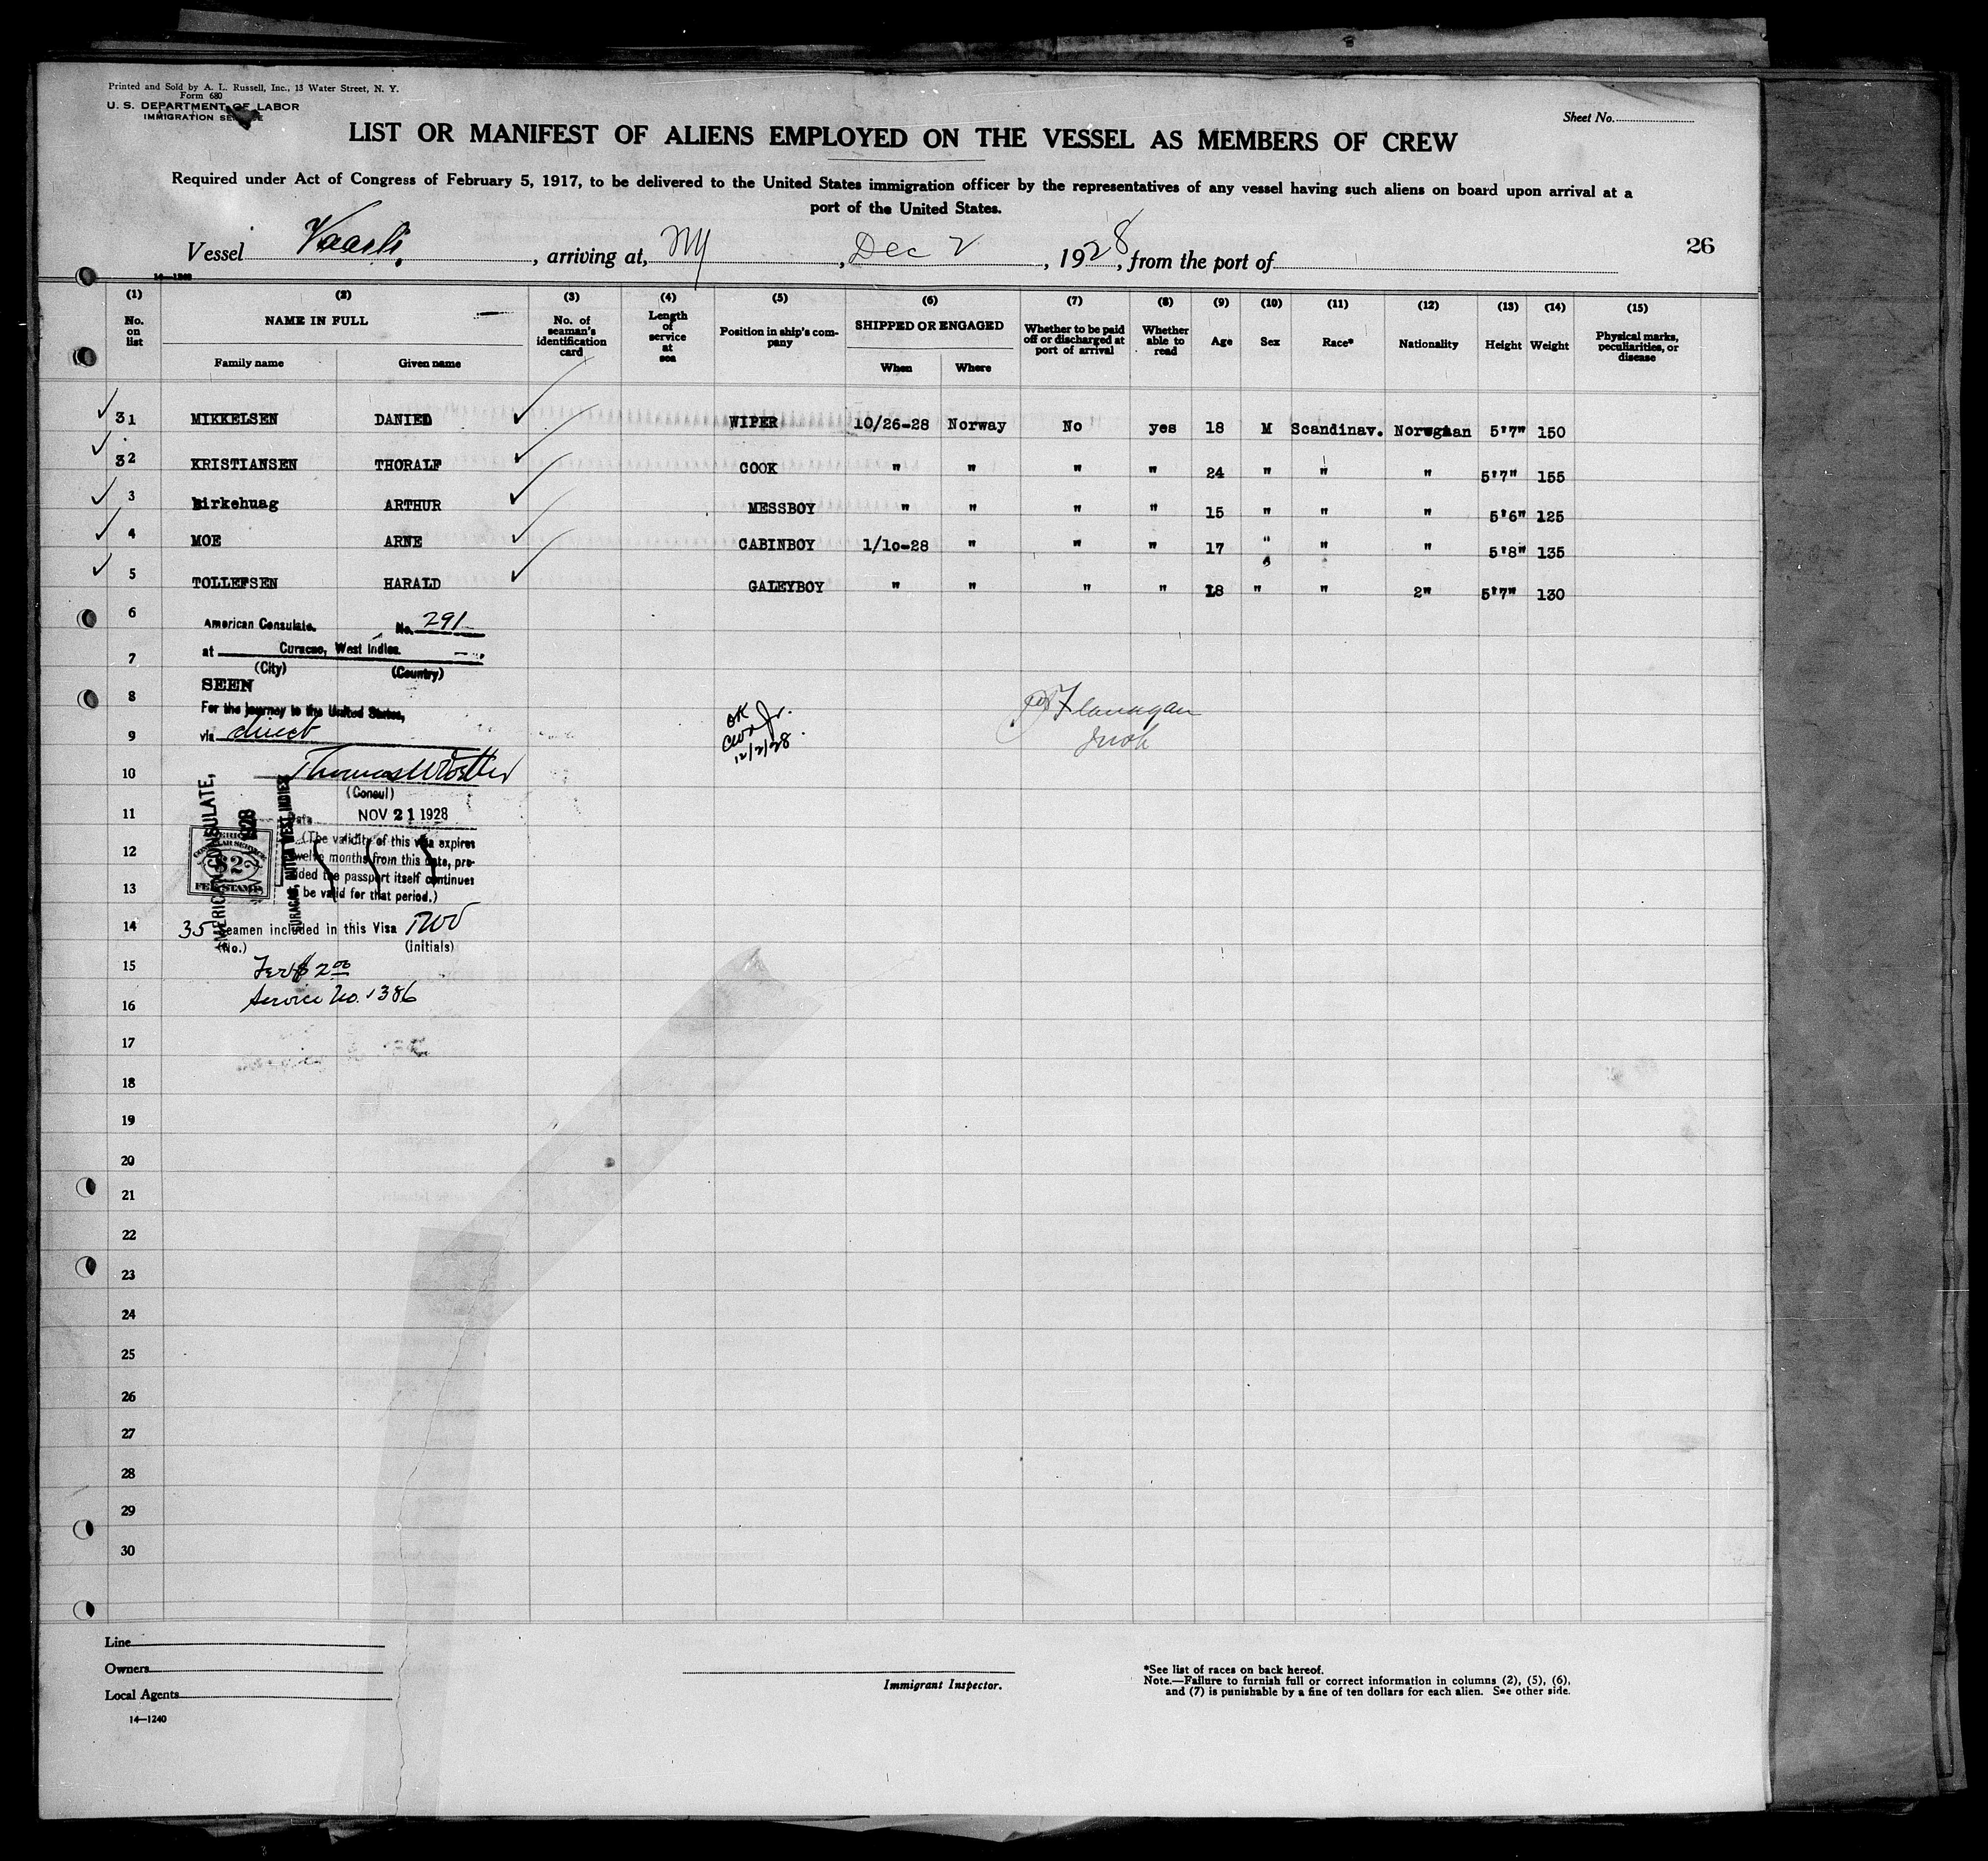 Printed and Sold by A. L. Russell, Inc., 13 Water Street, N. Y.
Form 680
U. S. DEPARTMENT OF LABOR
IMMIGRATION SERVICE
Sheet No.
LIST OR MANIFEST OF ALIENS EMPLOYED ON THE VESSEL AS MEMBERS OF CREW
Required under Act of Congress of February 5, 1917, to be delivered to the United States immigration officer by the representatives of any vessel having such aliens on board upon arrival at a
port of the United States.
Vessel, arriving at, NY, Dec 2, 1928, from the port of
26
14-1240
(1) (2) (3) (4) (5) (6) (7) (8) (9) (10) (11) (12) (13) (14) (15)
No. on list NAME IN FULL No. of seaman's identification card Length of service at sea Position in ship's company SHIPPED OR ENGAGED Whether to be paid off or discharged at port of arrival Whether able to read Age Sex Race* Nationality Height Weight Physical marks, peculiarities, or disease
Family name Given name When Where
31 MIKKELSEN DANIEL WIPER 10/26-28 Norway No yes 18 M Scandinav. Norwegian 5'7" 150
32 KRISTIANSEN THORALF COOK " " " " 24 " " " 5'7" 155
3 Birkehuag ARTHUR MESSBOY " " " " 15 " " " 5'6" 125
4 MOE ARNE CABINBOY 1/10-28 " " " 17 " " " 5'8" 135
5 TOLLEFSEN HARALD GALEYBOY " " " " 18 " " 2" 5'7" 130
6
American Consulate. No. 291
7
at Curacao, West Indies.
(City) (Country)
SEEN
8
For the journey to the United States,
9
via direct
OK
12/2/28
Flanagan
10
(Consul)
11
Date NOV 21 1928
(The validity of this visa expires
12
twelve months from this date, provided the passport itself continues
13
to be valid for that period.)
AMERICAN CONSULATE,
1928
CURACAO, DUTCH WEST INDIES
AMERICAN
CONSULAR SERVICE
$2
FEE STAMP
14
35 Seamen included in this Visa TWV
(No.) (initials)
15
$2.00
16
Service No. 1386
17
18
19
20
21
22
23
24
25
26
27
28
29
30
Line
Owners
Local Agents
14-1240
Immigrant Inspector.
*See list of races on back hereof.
Note.—Failure to furnish full or correct information in columns (2), (5), (6),
and (7) is punishable by a fine of ten dollars for each alien. See other side.